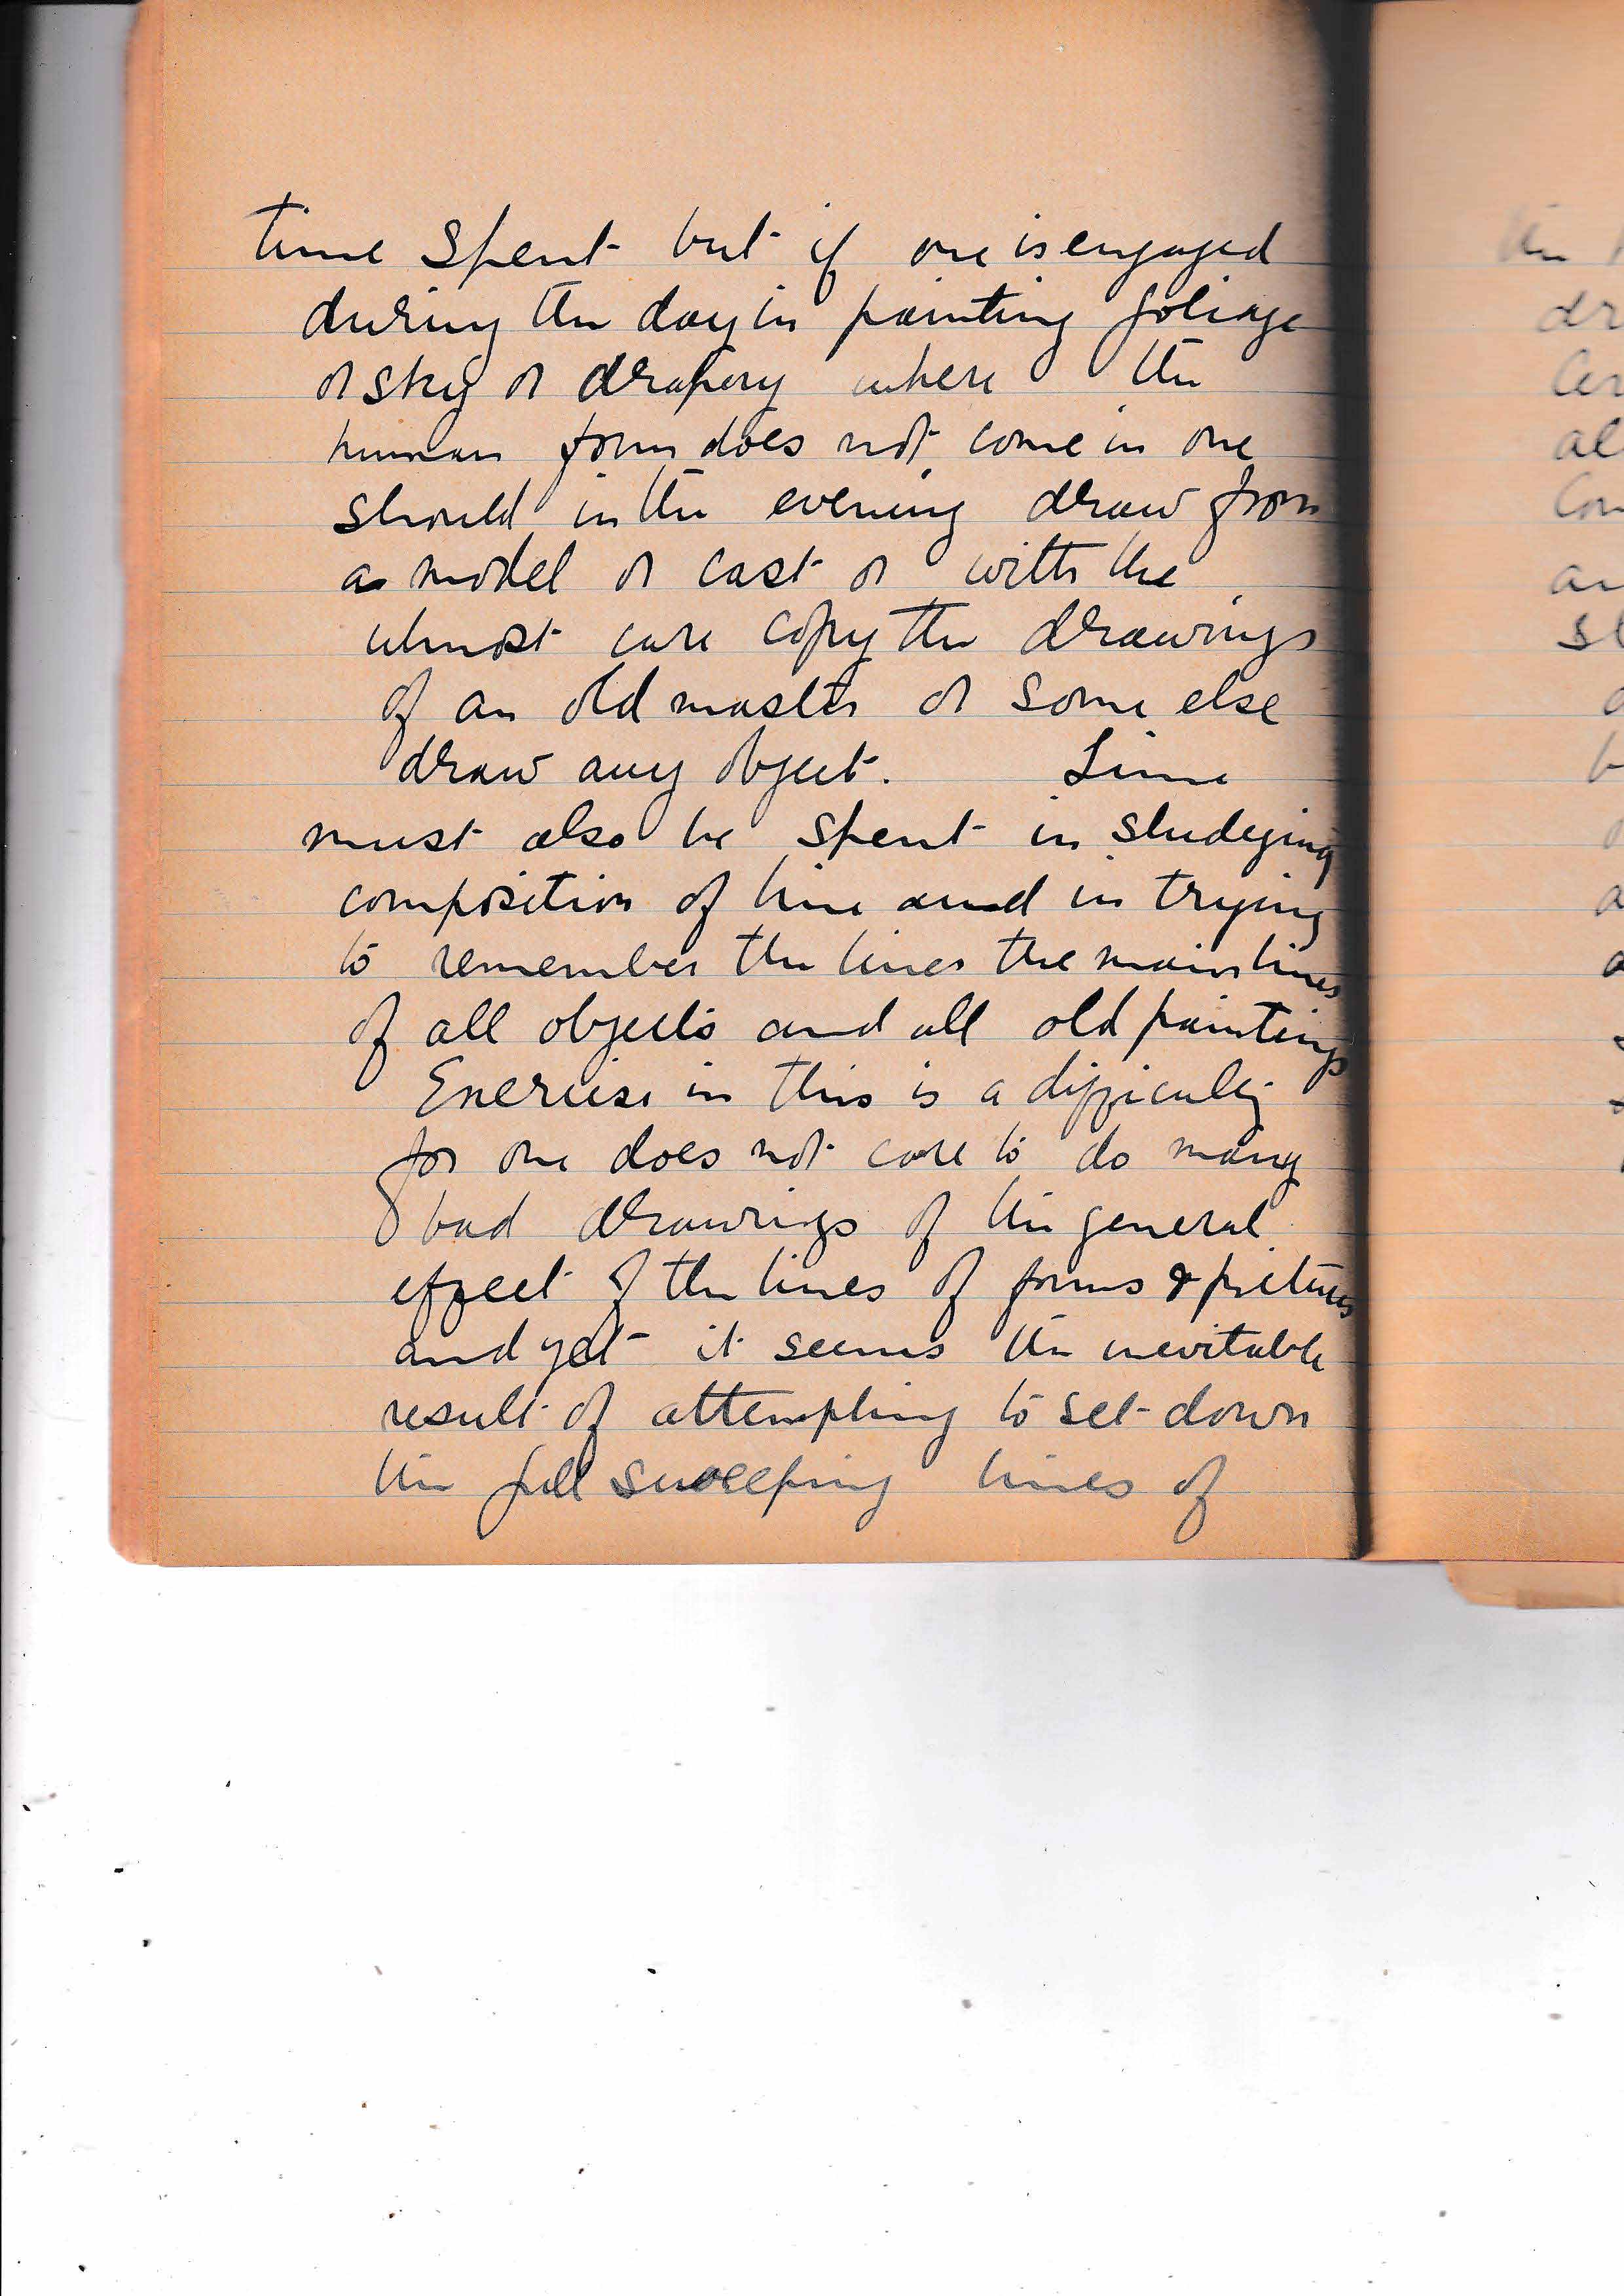 time spent but if one is engaged
during the day in painting foliage
or sky or drapery where the
human form does not come in one
should in the evening draw from
a model or cast or with the
utmost care copy the drawings
of an old master or some else
draw any object. Time
must also be spent in studying
composition of line and in trying
to remember the lines the main lines
of all objects and all old paintings
Exercise in this is a difficulty
for one does not care to do many
bad drawings of the general
effect of the lines of forms & pictures
and yet it seems the inevitable
result of attempting to set down
the full sweeping lines of